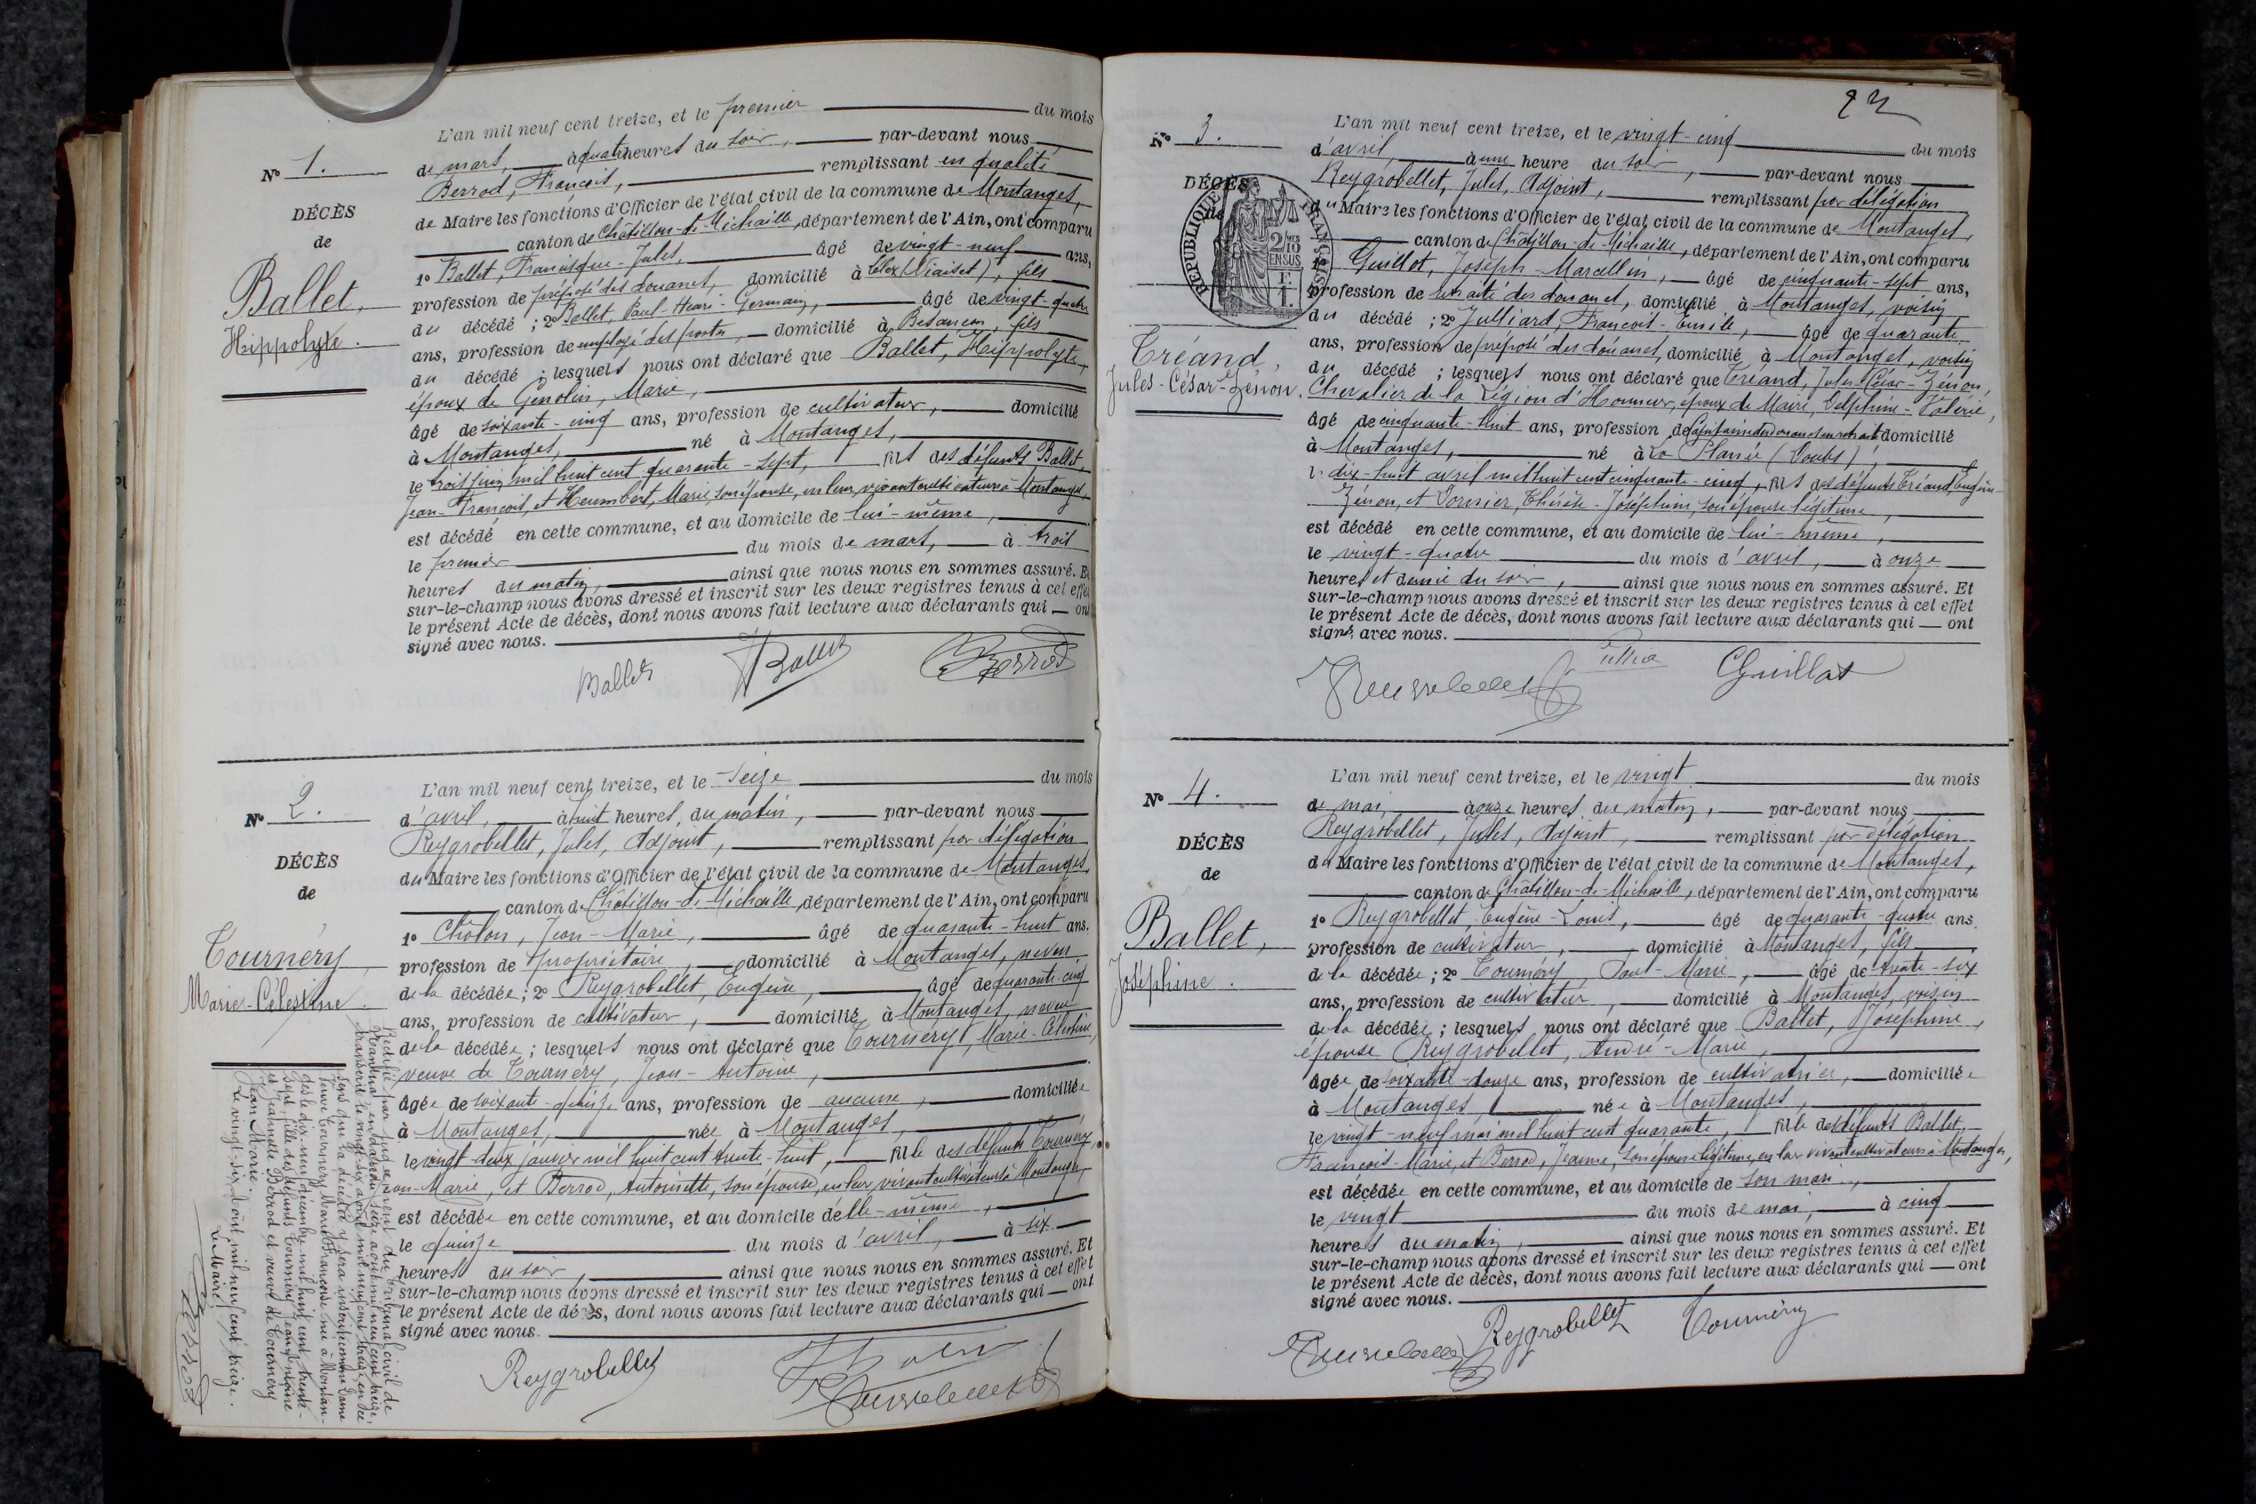 L'an mil neuf cent treize, et le premier du mois
N° 1.
de mars, à quatre heures du soir, par-devant nous
Berrod, François, remplissant en qualité
DÉCÈS
de Maire les fonctions d'Officier de l'état civil de la commune de Montanges,
de
canton de Châtillon-de-Michaille, département de l'Ain, ont comparu
1° Ballet, Francisque-Jules, âgé de vingt-neuf ans,
Ballet,
profession de préposé des douanes, domicilié à Lélex, fils
du décédé; 2° Ballet, Paul-Henri-Germain, âgé de vingt-quatre
Hippolyte.
ans, profession de employé des postes, domicilié à Besançon, fils
du décédé; lesquels nous ont déclaré que Ballet, Hippolyte,
époux de Genolin, Marie,
âgé de soixante-cinq ans, profession de cultivateur, domicilié
à Montanges, né à Montanges,
le trois juin mil huit cent quarante-sept, fils des défunts Ballet,
Jean-François, et Humbert, Marie, son épouse, en leur vivant cultivateurs à Montanges
est décédé en cette commune, et au domicile de lui-même,
le premier du mois de mars, à trois
heures du matin, ainsi que nous nous en sommes assuré. Et
sur-le-champ nous avons dressé et inscrit sur les deux registres tenus à cet effet
le présent Acte de décès, dont nous avons fait lecture aux déclarants qui ont
signé avec nous.
Ballet Ballet Berrod
L'an mil neuf cent treize, et le seize du mois
N° 2.
d'avril, à huit heures, du matin, par-devant nous
Reygrobellet, Jules, Adjoint, remplissant par délégation
DÉCÈS
du Maire les fonctions d'Officier de l'état civil de la commune de Montanges,
de
canton de Châtillon-de-Michaille, département de l'Ain, ont comparu
1° Cholon, Jean-Marie, âgé de quarante-huit ans,
Tournéry
profession de propriétaire, domicilié à Montanges, neveu
de la décédée; 2° Reygrobellet, Eugène, âgé de quarante-cinq
Marie-Célestine.
ans, profession de cultivateur, domicilié à Montanges, neveu
de la décédée; lesquels nous ont déclaré que Tournéry, Marie-Célestine,
veuve de Tournéry, Jean-Antoine,
âgée de soixante-quinze ans, profession de aucune, domiciliée
à Montanges, née à Montanges,
le vingt-deux janvier mil huit cent trente-huit, fille des défunts Tournéry
Jean-Marie, et Berrod, Antoinette, son épouse, en leur vivant cultivateurs à Montanges,
est décédée en cette commune, et au domicile d'elle-même,
le quinze du mois d'avril, à six
heures du soir, ainsi que nous nous en sommes assuré. Et
sur-le-champ nous avons dressé et inscrit sur les deux registres tenus à cet effet
le présent Acte de décès, dont nous avons fait lecture aux déclarants qui ont
signé avec nous.
Reygrobellet
Rectifié par jugement du Tribunal civil de
Nantua, en date du seize août mil neuf cent treize,
transcrit le vingt-six août mil neuf cent treize, en ce
sens que la décédée y sera inscrite comme dame
veuve Tournéry, Marie Françoise née à Montan-
ges le dix-neuf décembre mil huit cent trente-
sept, fille des défunts Tournéry, Jean-Antoine
et Jeannette Berrod et veuve de Tournéry
Jean Marie.
Le vingt-six Août mil neuf cent treize.
Le Maire,
Berrod
22
L'an mil neuf cent treize, et le vingt-cinq du mois
N° 3.
d'avril, à une heure du soir, par-devant nous
DÉCÈS
Reygrobellet, Jules, Adjoint, remplissant par délégation
de
du Maire les fonctions d'Officier de l'état civil de la commune de Montanges,
RÉPUBLIQUE FRANÇAISE
2/10 EN SUS
canton de Châtillon-de-Michaille, département de l'Ain, ont comparu
1° Guillot, Joseph-Marcellin, âgé de cinquante-sept ans,
profession de retraité des douanes, domicilié à Montanges, voisin
du décédé; 2° Julliard, François-Emile, âgé de quarante
Tréand,
ans, profession de préposé des douanes, domicilié à Montanges, voisin
Jules-César-Zénon.
du décédé; lesquels nous ont déclaré que Tréand, Jules-César-Zénon,
Chevalier de la Légion d'Honneur, époux de Maire, Delphine-Valérie,
âgé de cinquante-huit ans, profession de Capitaine des douanes en retraite domicilié
à Montanges, né à La Planée (Doubs),
le dix-huit avril mil huit cent cinquante-cinq, fils des défunts Tréand, Eugène-
Zénon, et Dornier, Thérèse-Joséphine, son épouse légitime,
est décédé en cette commune, et au domicile de lui-même,
le vingt-quatre du mois d'avril, à onze
heures et demie du soir, ainsi que nous nous en sommes assuré. Et
sur-le-champ nous avons dressé et inscrit sur les deux registres tenus à cet effet
le présent Acte de décès, dont nous avons fait lecture aux déclarants qui ont
signé avec nous.
Guillot
L'an mil neuf cent treize, et le vingt du mois
N° 4.
de mai, à onze heures du matin, par-devant nous
Reygrobellet, Jules, Adjoint, remplissant par délégation
DÉCÈS
du Maire les fonctions d'Officier de l'état civil de la commune de Montanges,
de
canton de Châtillon-de-Michaille, département de l'Ain, ont comparu
1° Reygrobellet, Eugène-Louis, âgé de quarante-quatre ans,
Ballet,
profession de cultivateur, domicilié à Montanges, fils
de la décédée; 2° Tournéry, Paul-Marie, âgé de trente-six
Joséphine.
ans, profession de cultivateur, domicilié à Montanges, voisin
de la décédée; lesquels nous ont déclaré que Ballet, Joséphine,
épouse Reygrobellet, André-Marie,
âgée de soixante-douze ans, profession de cultivatrice, domiciliée
à Montanges, née à Montanges,
le vingt-neuf mai mil huit cent quarante, fille des défunts Ballet,
François-Marie, et Berrod, Jeanne, son épouse légitime, en leur vivant cultivateurs à Montanges,
est décédée en cette commune, et au domicile de son mari,
le vingt du mois de mai, à cinq
heures du matin, ainsi que nous nous en sommes assuré. Et
sur-le-champ nous avons dressé et inscrit sur les deux registres tenus à cet effet
le présent Acte de décès, dont nous avons fait lecture aux déclarants qui ont
signé avec nous.
Reygrobellet Tournéry